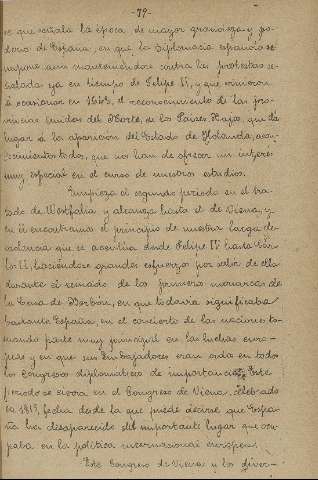 -79-
es que señala la época de mayor grandeza y po-
derío de España, en que la diplomacia española se
impone aun manteniéndose contra las protestas se-
ñaladas ya en tiempo de Felipe II, y que vinieron
á ocasionar en 1648, el reconocimiento de las pro-
vincias unidas del Norte, de los Países Bajos, que da
lugar á la aparición del Estado de Holanda, acon-
tecimientos todos, que no han de ofrecer un interés
muy especial en el curso de nuestros estudios.
Empieza el segundo periodo en el tra-
tado de Westfalia y alcanza hasta el de Viena, y
en él encontramos el principio de nuestra larga de-
cadencia que se acentúa desde Felipe IV hasta Cár-
los II, haciéndose grandes esfuerzos por salir de ella
durante el reinado de los primeros monarcas de
la Casa de Borbón, en que todavía significaba
bastante España, en el concierto de las naciones to-
mando parte muy principal en las luchas euro-
peas y en que sus Embajadores eran oidos en todos
los Congresos diplomáticos de importancia. Este
periodo se cierra en el Congreso de Viena, celebrado
en 1815, fecha desde la que puede decirse que Espa-
ña ha desaparecido del importante lugar que ocu-
paba en la política internacional europea.
Este Congreso de Viena y los diver-